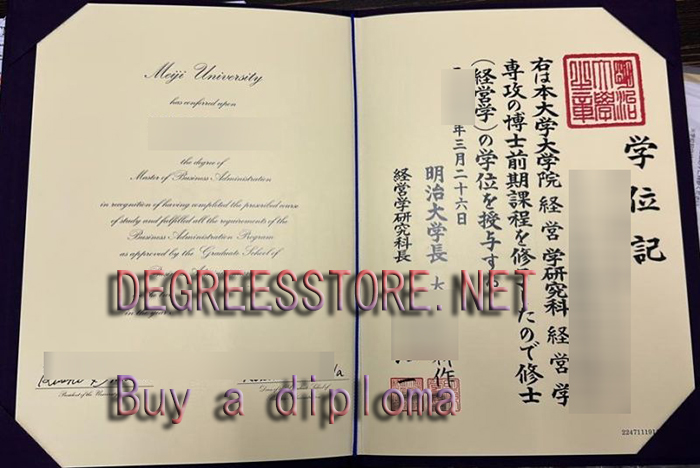 Meiji University
has conferred upon
the degree of
Master of Business Administration
in recognition of having completed the prescribed course
of study and fulfilled all the requirements of the
Business Administration Program
as approved by the Graduate School of
President of the University
学位記
右は本大学大学院経営学研究科経営学
専攻の博士前期課程を修了したので修士
(経営学)の学位を授与する
年三月二十六日
明治大学長
経営学研究科長
DEGREESSTORE.NET
Buy a diploma